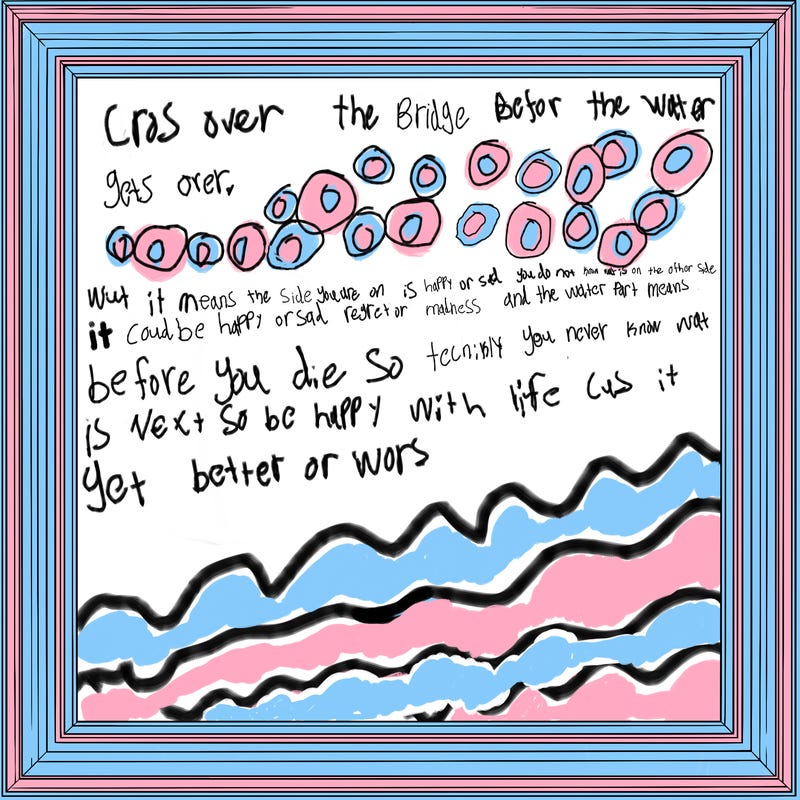 Cros over the Bridge Befor the water
gets over.
wut it means the side you are on is happy or sad you do not know wat is on the other side
it coud be happy or sad regret or madness and the water part means
before you die so tecnibly you never know wat
is Next so be happy with life cus it
get better or wors